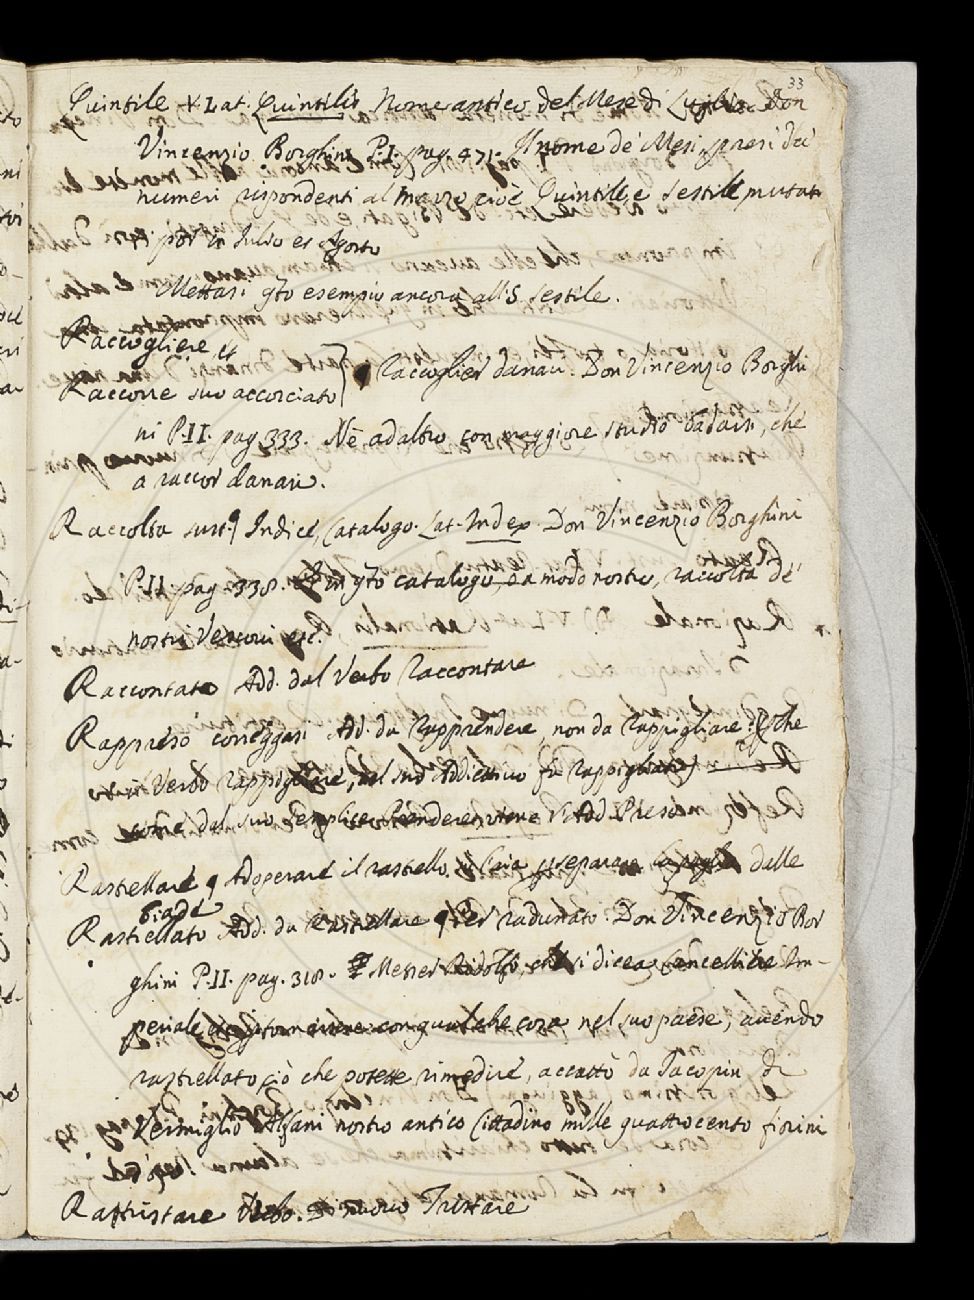 33
Quintile V. Lat. Quintilis Nome antico del Mese di Luglio. Don
Vincenzio Borghini P.I. pag. 471. Il nome de' Mesi, presi dai
numeri rispondenti al marzo cioè Quintile, e Sestile mutati
poi in Julio et Agosto
Mettasi qto esempio ancora all'S. Sestile.
Raccogliere, et
Raccorre suo accorciato } Raccoglier danari. Don Vincenzio Borghi
ni P.II. pag. 333. Nè ad altro con maggiore studio badasti, che
a raccor danari.
Raccolta sust. Indice, Catalogo. Lat. Index. Don Vincenzio Borghini
P.II. pag. 338. in qto catalogo, o a modo nostro, raccolta de'
nostri Vescovi etc.
Raccontato Add. dal Verbo Raccontare
Rappreso correggasi Ad. da Rapprendere, non da rappigliare. che
il Verbo rappigliare, nel suo Addiettivo fa rappigliato
come dal suo semplice Prendere, viene V. Add. Preso
Rastellare Adoperare il rastello, separare la paglia dalle
biade
Rastellato Add. da Rastellare Per radunato. Don Vincenzio Bor
ghini P.II. pag. 318. Messer Ridolfo, che si dicea Cancelliere Im-
periale per tornarsene con qualche cosa nel suo paese, avendo
rastrellato ciò che potette rimedire, accattò da Jacopin di
Vermiglio Alfani nostro antico Cittadino mille quattrocento fiorini
Rattristare Verbo. Di nuovo Tristare